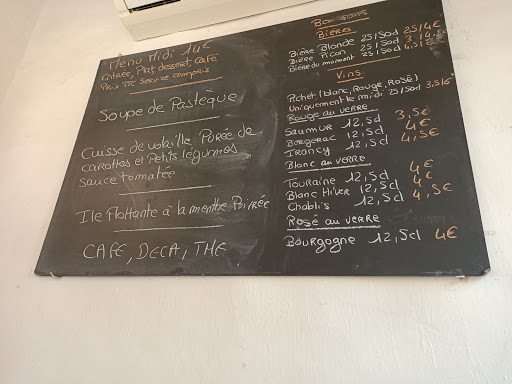 Menu Midi 14€
Entrée, Plat, dessert, Café
Prix TTC Service compris
Soupe de Pastèque
Cuisse de volaille Purée de
carottes et Petits légumes
sauce tomatée
Ile flottante à la menthe Poivrée
CAFE, DECA, THE
Boissons
Bières
Bière Blonde 25/50cl 2,5/4€
Bière Picon 25/50cl
Bière du moment 25/50cl
Vins
Pichet (blanc, Rouge, Rosé)
Uniquement le midi 25/50cl
Rouge au verre
Saumur 12,5cl 3,5€
Bergerac 12,5cl 4€
Irancy 12,5cl 4,5€
Blanc au verre
Touraine 12,5cl 4€
Blanc Hiver 12,5cl 4€
Chablis 12,5cl 4,5€
Rosé au verre
Bourgogne 12,5cl 4€